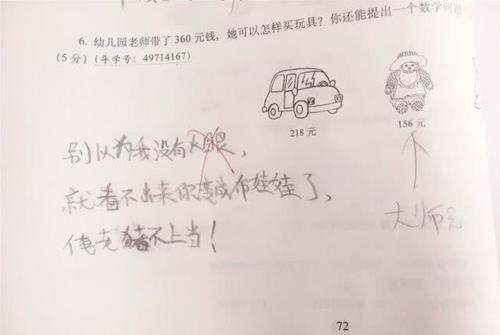 6. 幼儿园老师带了360元钱，她可以怎样买玩具？你还能提出一个数学问题
(5分)(导学号：49714167)
218元
156元
别以为我没有火眼，
就看不出来你变成布娃娃了，
俺老猪不上当！
大师兄
72